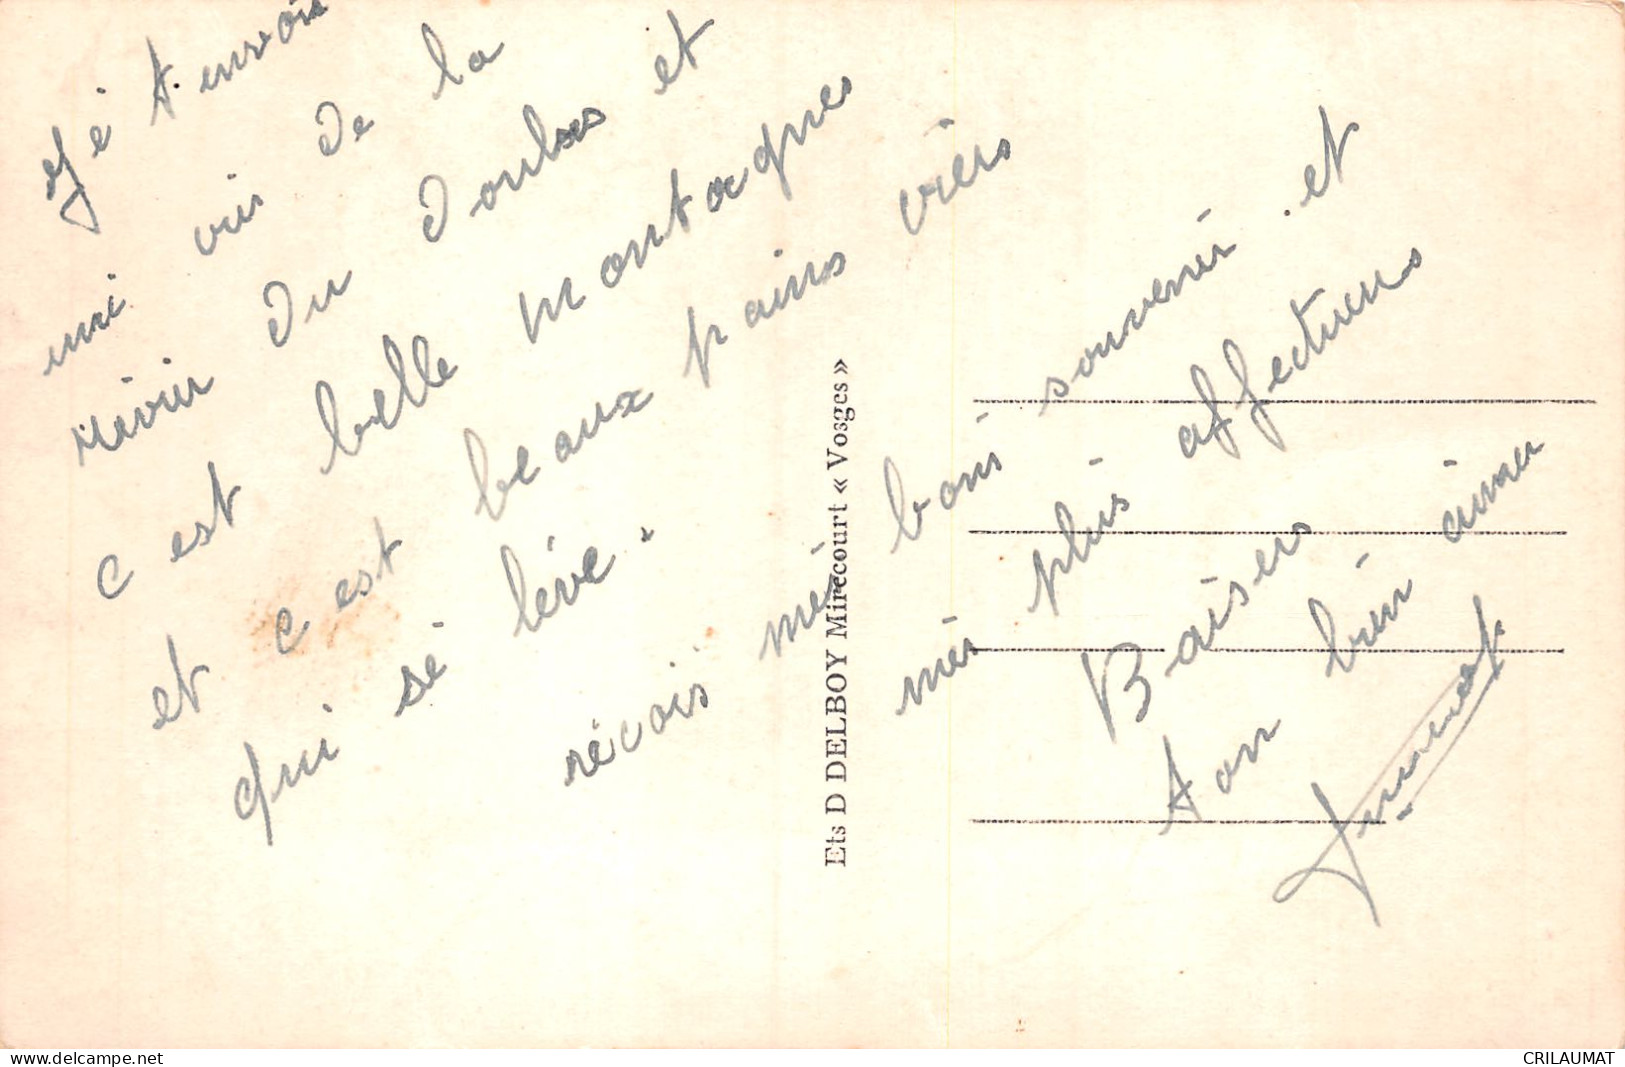 Jé t envoie
uni vui de la
rivier du doubs et
c est belle montagues
et c est beaux pains viers
qui sé léve.
récois més bons souvenir et
més plus affectueus
Baisers
ton bien aimer
Ets D DELBOY Mirecourt « Vosges »
CRILAUMAT